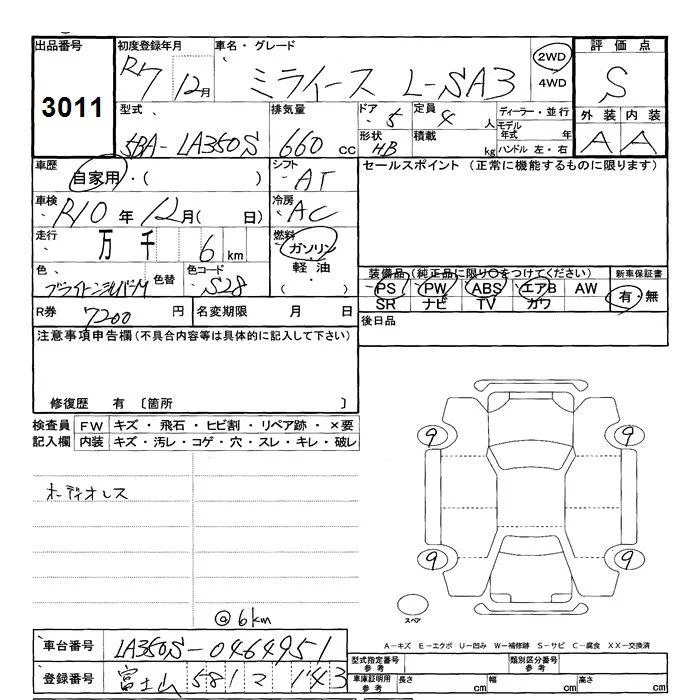 出品番号
3011
初度登録年月
R17 12月
車名・グレード
ミライース L-SA3
2WD
4WD
評価点
S
外装 内装
A A
型式
5BA-LA350S
排気量
660 cc
ドア
5
定員
4 人
形状
HB
積載
kg
ディーラー・並行
モデル年式 年
ハンドル 左・右
車歴
自家用・( )
シフト
AT
セールスポイント (正常に機能するものに限ります)
車検
R10 年 12月( 日)
冷房
AC
走行
万 千 6 km
燃料
ガソリン
軽油
( )
色
ブライトシルバーM
色替
色コード
S28
装備品(純正品に限り○をつけてください)
PS PW ABS エアB AW
SR ナビ TV カワ
新車保証書
有・無
R券 7200 円
名変期限 月 日
後日品
注意事項申告欄(不具合内容等は具体的に記入して下さい)
修復歴 有 〔箇所 〕
検査員記入欄
FW キズ・飛石・ヒビ割・リペア跡・×要
内装 キズ・汚レ・コゲ・穴・スレ・キレ・破レ
オーディオレス
@6km
9 9
9 9
スペア
A-キズ E-エクボ U-凹み W-補修跡 S-サビ C-腐食 XX-交換済
車台番号 LA350S-0464951
登録番号 富士山 581 こ 143
型式指定番号 参考
類別区分番号 参考
車庫証明用 参考
長さ cm 幅 cm 高さ cm